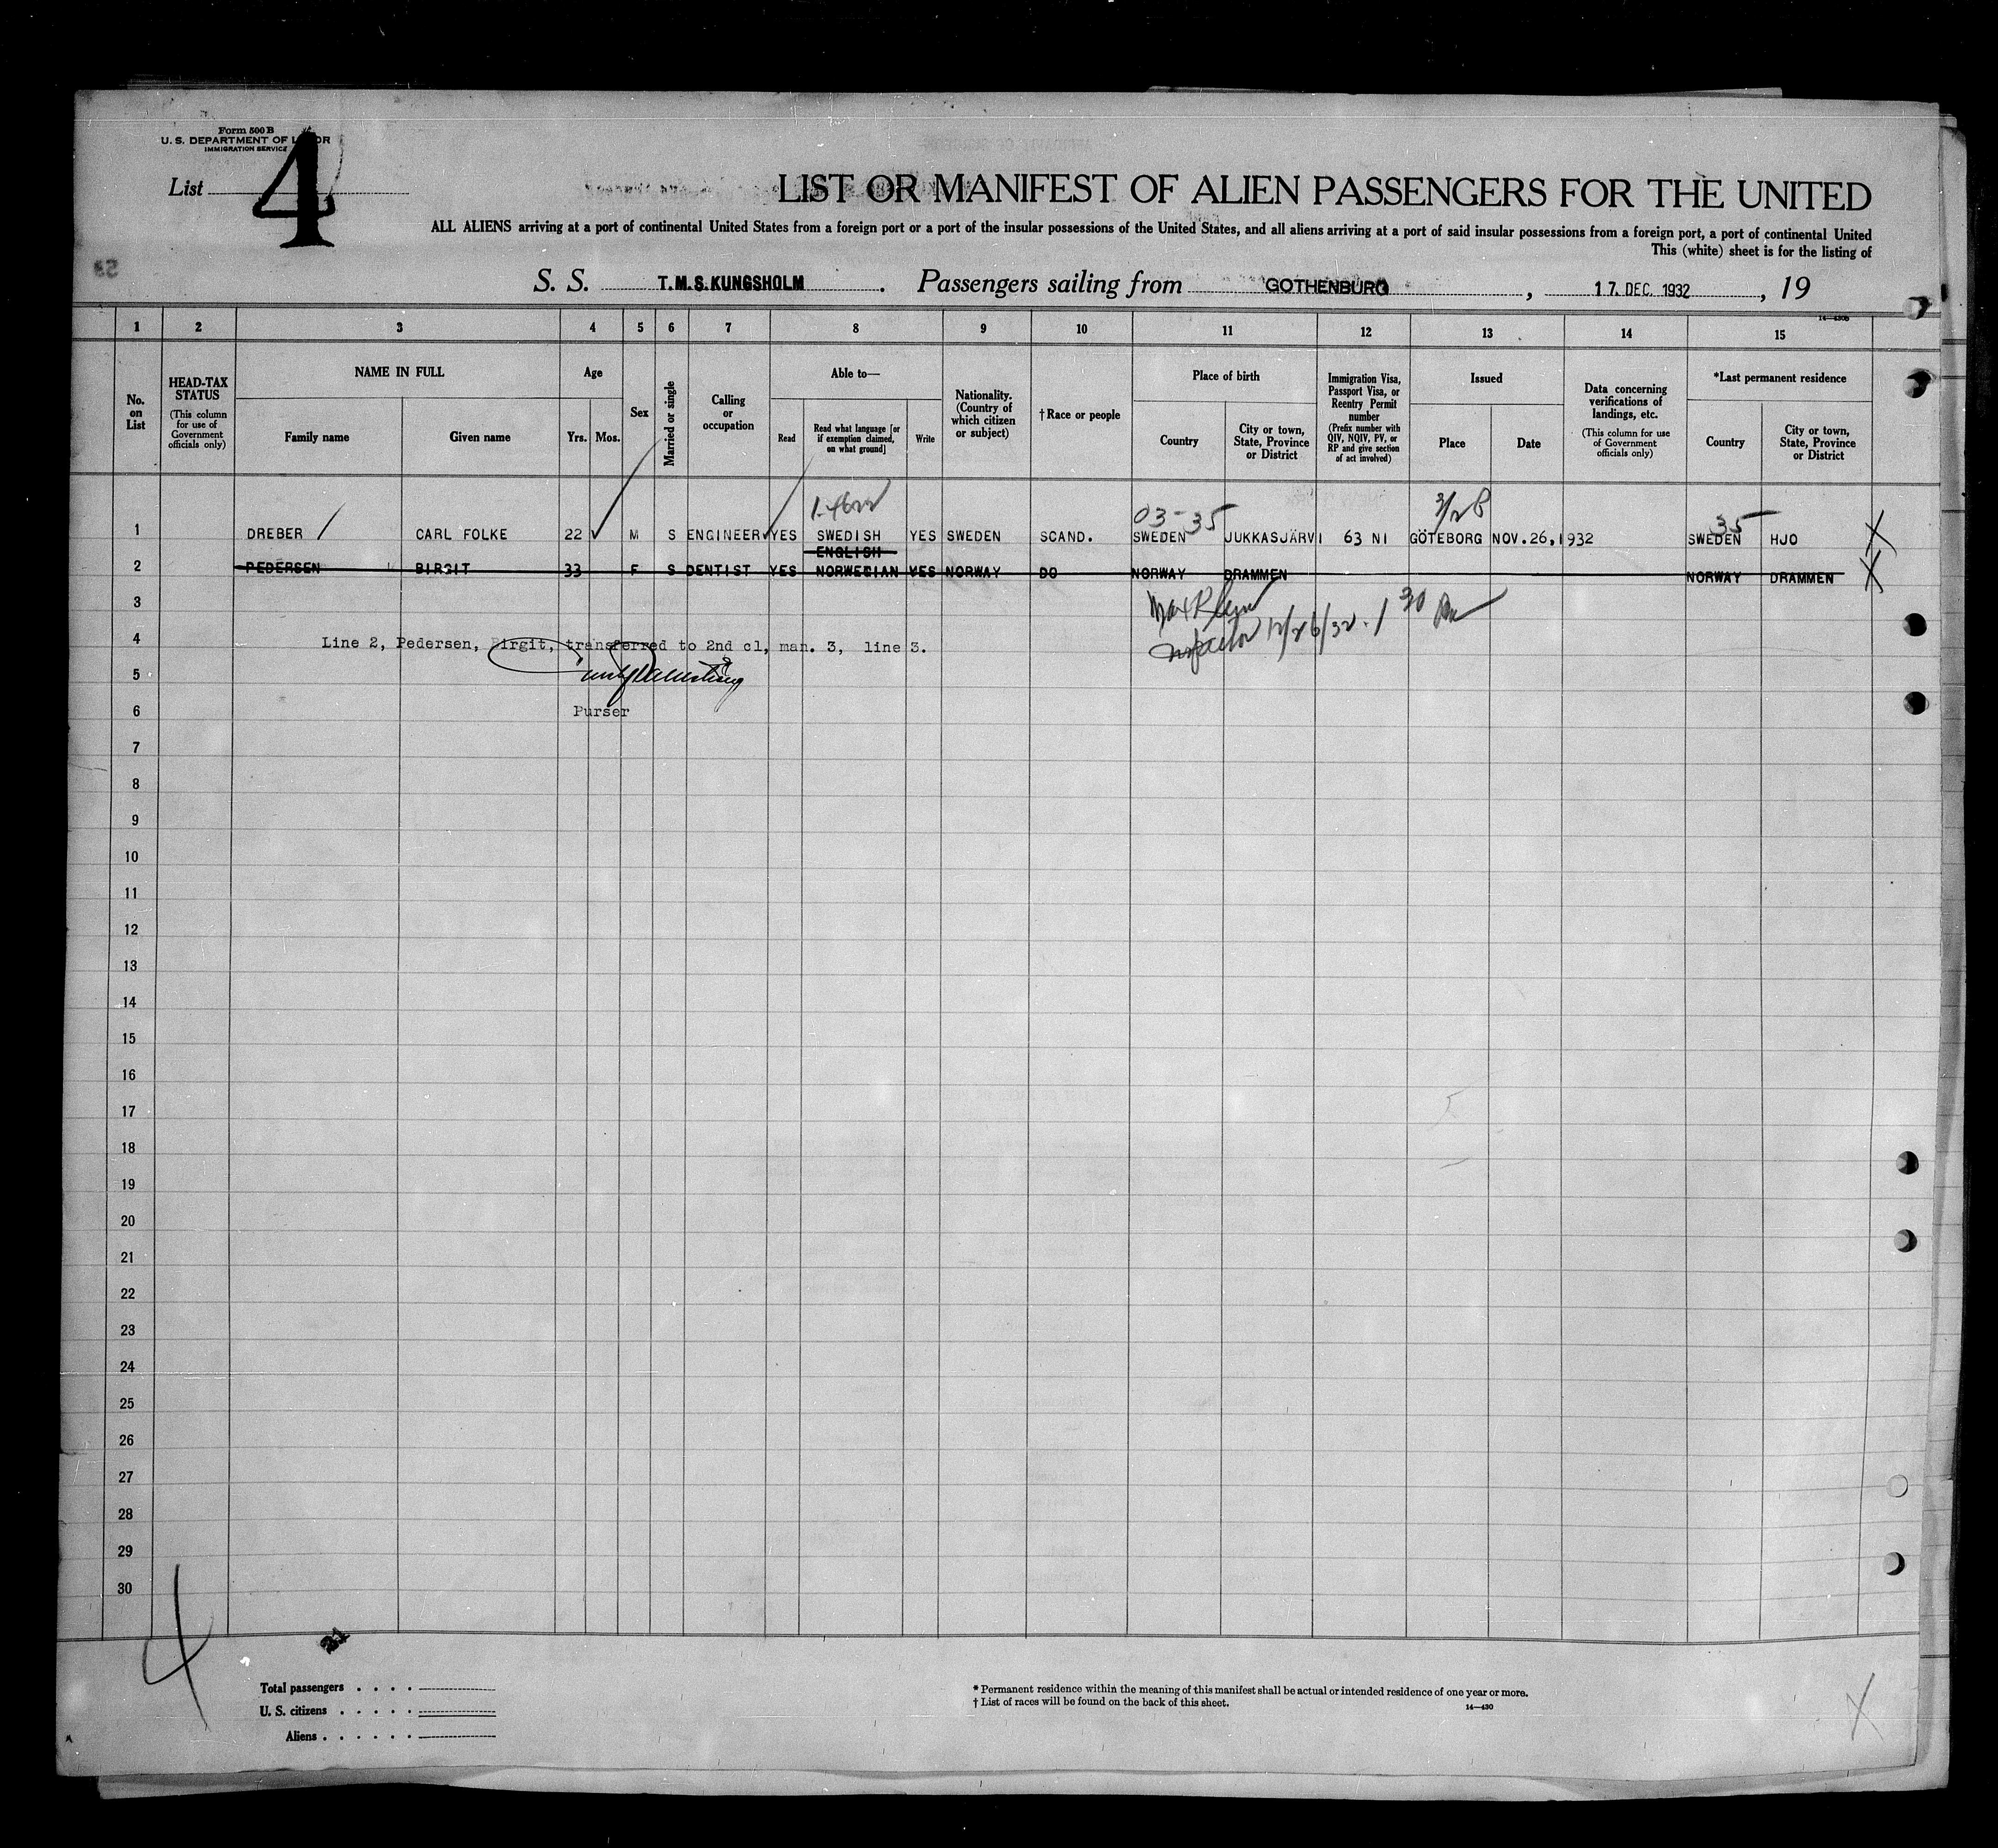 Form 500 B
U. S. DEPARTMENT OF LABOR
IMMIGRATION SERVICE
List 4
LIST OR MANIFEST OF ALIEN PASSENGERS FOR THE UNITED
ALL ALIENS arriving at a port of continental United States from a foreign port or a port of the insular possessions of the United States, and all aliens arriving at a port of said insular possessions from a foreign port, a port of continental United
This (white) sheet is for the listing of
S. S. T.M.S.KUNGSHOLM . Passengers sailing from GOTHENBURG , 17. DEC. 1932 , 19
1 2 3 4 5 6 7 8 9 10 11 12 13 14 15
No. on List
HEAD-TAX STATUS
(This column for use of Government officials only)
NAME IN FULL
Family name
Given name
Age
Yrs. Mos.
Sex
Married or single
Calling or occupation
Able to—
Read
Read what language [or if exemption claimed, on what ground]
Write
Nationality. (Country of which citizen or subject)
†Race or people
Place of birth
Country
City or town, State, Province or District
Immigration Visa, Passport Visa, or Reentry Permit number
(Prefix number with QIV, NQIV, PV, or RP and give section of act involved)
Issued
Place
Date
Data concerning verifications of landings, etc.
(This column for use of Government officials only)
*Last permanent residence
Country
City or town, State, Province or District
03-35 35
1 DREBER CARL FOLKE 22 M S ENGINEER YES SWEDISH YES SWEDEN SCAND. SWEDEN JUKKASJÄRVI 63 NI GÖTEBORG NOV.26,1932 SWEDEN HJO X
ENGLISH
2 PEDERSEN BIRGIT 33 F S DENTIST YES NORWEGIAN YES NORWAY DO NORWAY DRAMMEN NORWAY DRAMMEN X
3
Inspector 12/26/32. 1 30 PM
4 Line 2, Pedersen, Birgit, transferred to 2nd cl, man. 3, line 3.
5
6 Purser
7
8
9
10
11
12
13
14
15
16
17
18
19
20
21
22
23
24
25
26
27
28
29
30
4
Total passengers . . . .
U. S. citizens . . . . .
Aliens . . . . . .
* Permanent residence within the meaning of this manifest shall be actual or intended residence of one year or more.
† List of races will be found on the back of this sheet.
14—430
X